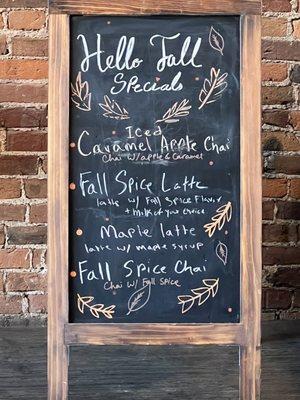 Hello Fall
Specials
Iced
Caramel Apple Chai
Chai w/ apple & Caramel
Fall Spice Latte
latte w/ Fall Spice Flavor
+ milk of your choice
Maple latte
latte w/ maple syrup
Fall Spice Chai
Chai w/ Fall Spice